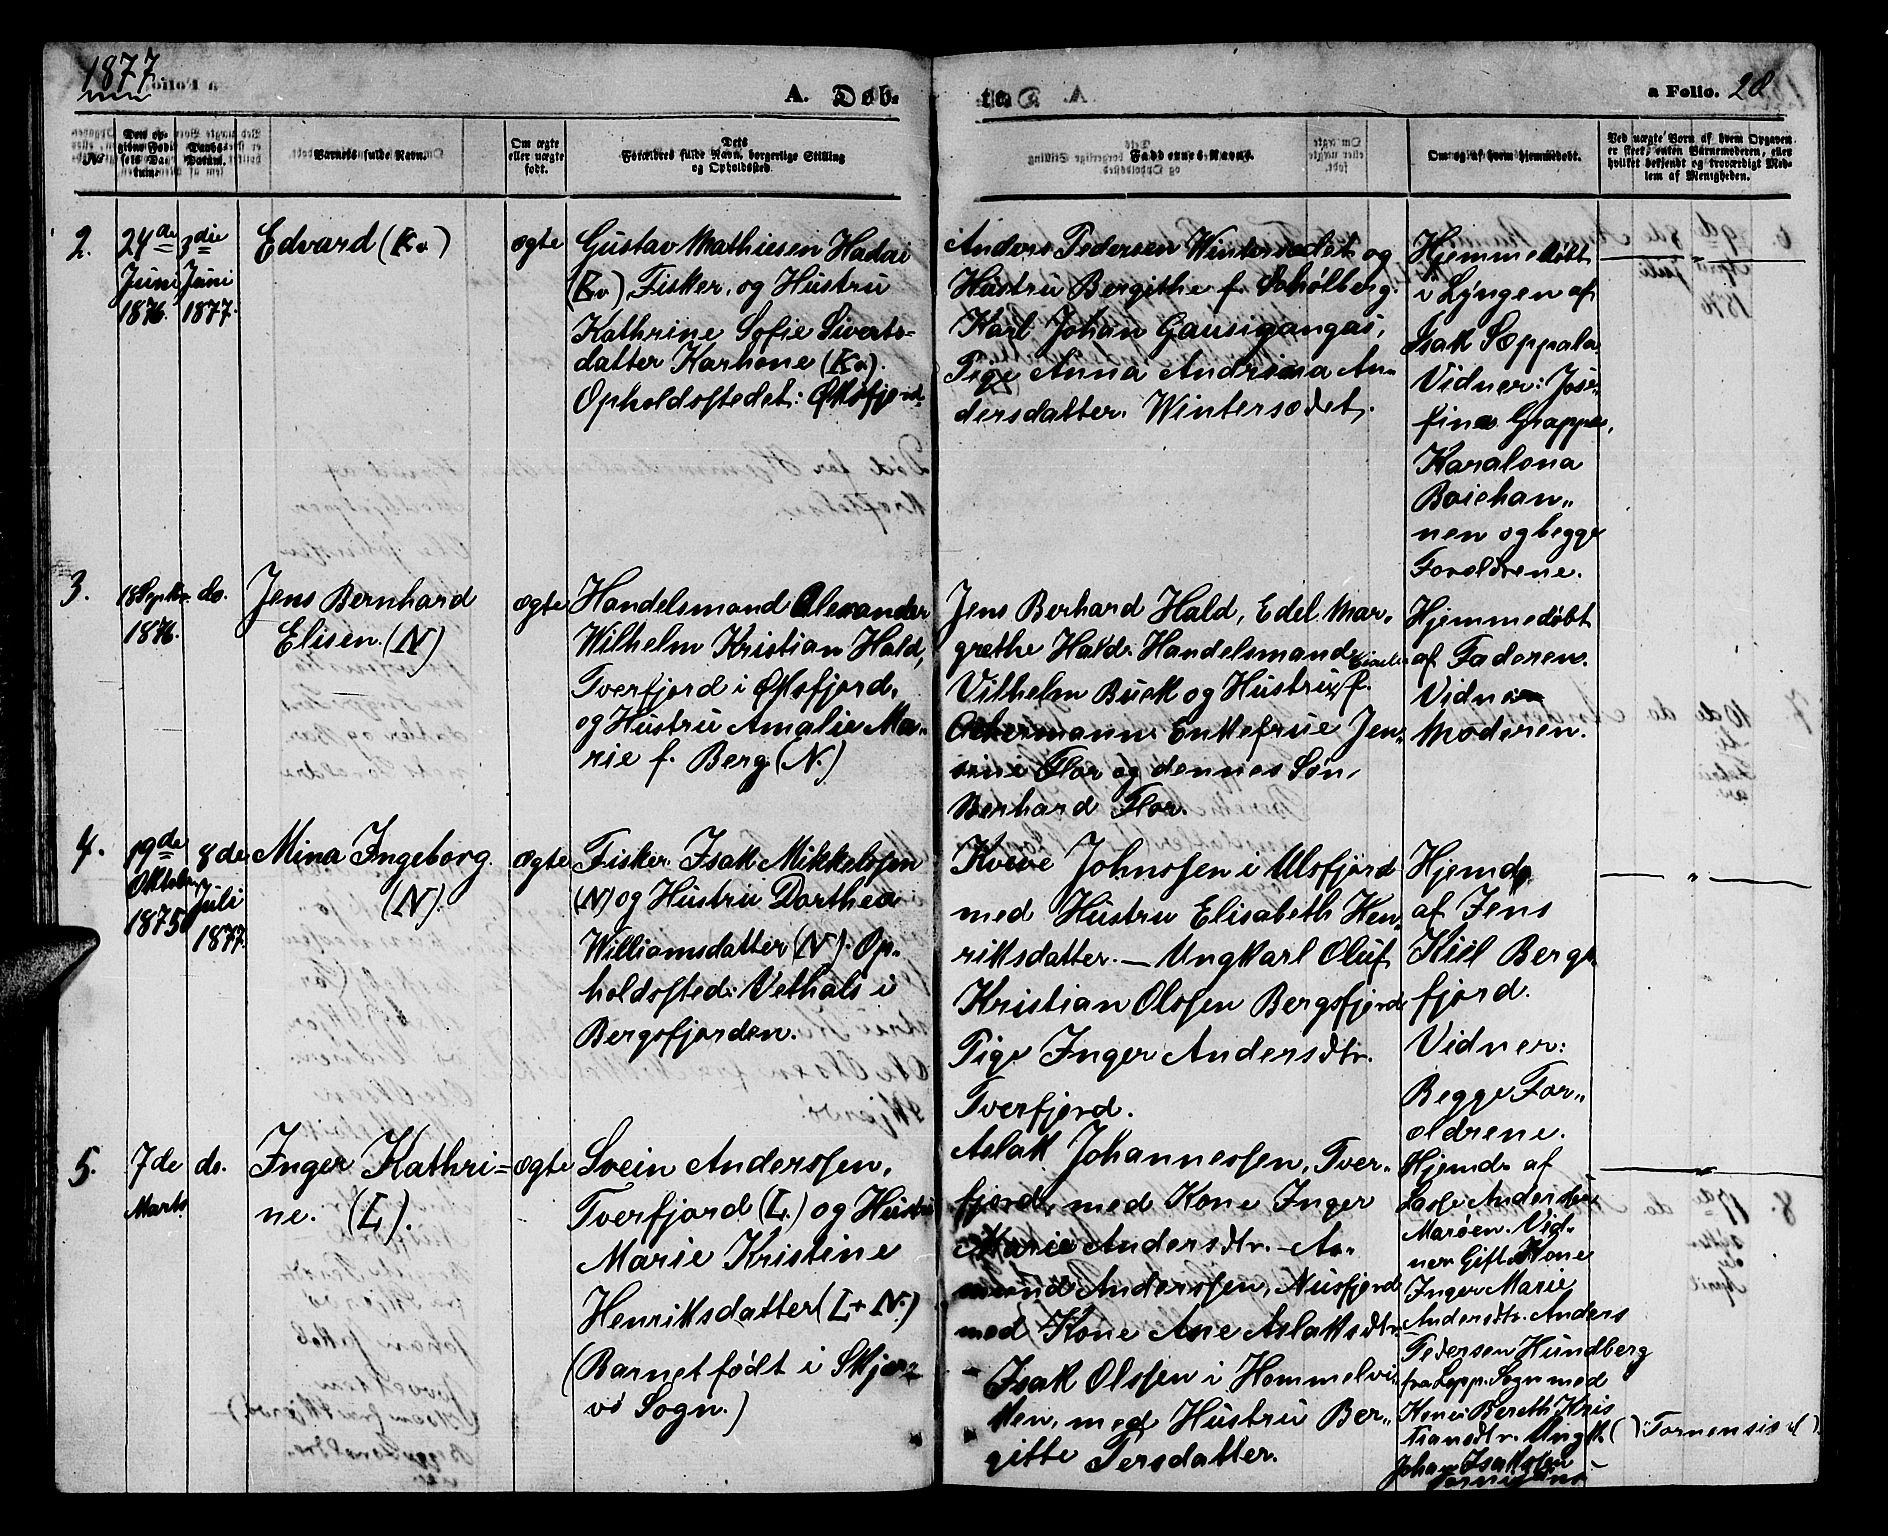 1877
A. Døb-
te.
a Folio. 28
No
Dets op-
givne Fød-
sels Da-
tum.
Daabs-
Datum.
Barnets fulde Navn.
Om ægte
eller uægte
født.
Dets
Forældres fulde Navn, borgerlige Stilling
og Opholdssted.
Faddernes Navne.
Om og af hvem hjemmedøbt.
Ved uægte Børn af hvem Opgaven
er skeet, enten Barnemoderen, eller
hvilket bekjendt og troværdigt Med-
lem af Menigheden.
2.
24de
Juni
1876.
3die
Juni
1877.
Edvard (Kv.)
ægte
Gustav Mathiesen Hadai
(Kv.) Fisker, og Hustru
Kathrine Sofie Siverts-
datter Karhone (Kv.).
Opholdsstedet: Øksfjord.
Anders Pedersen Wintersædet og
Hustru Bergithe f. Schølberg.
Karl Johan Gausigangas,
Pige Anna Andrina An-
dersdatter. Wintersædet.
Hjemmedøbt
i Lyngen af
Isak Sæppala
Vidner: Jose-
fina Grappe,
Karalona
Boiehan-
nen og begge
Forældrene.
3.
18 Septbr.
1876.
do.
Jens Bernhard
Elisen. (N)
ægte
Handelsmand Alexander
Wilhelm Kristian Hald,
Tverfjord i Øksfjord,
og Hustru Amalie Ma-
rie f. Berg (N.)
Jens Berhard Hald, Edel Mar-
grethe Hald. Handelsmand
Vilhelm Buck og Hustru f.
Ackermann. Enkefrue Jen-
sine Flor og dennes Søn,
Berhard Flor.
Hjemmedøbt
af Faderen.
Vidne
Moderen.
4.
19de
Oktober
1875
8de
Juli
1877.
Mina Ingeborg.
(N).
ægte
Fisker Isak Mikkelssen
(N) og Hustru Dorthea
Williamsdatter (N). Op-
holdssted: Vethals i
Bergsfjorden.
Kveve Johnssen i Ulsfjord
med Hustru Elisabeth Hen-
riksdatter. — Ungkarl Oluf
Kristian Olssen Bergsfjord
Pige Inger Andersdtr.
Tverfjord.
Hjemd.
af Jens
Kiil Bergs-
fjord.
Vidner:
Begge For-
ældrene.
5.
7de
Marts
do.
Inger Kathri-
ne. (L).
ægte
Svein Anderssen,
Tverfjord (L.) og Hustru
Marie Kristine
Henriksdatter (L + N.)
(Barnet født i Skjer-
vø Sogn.)
Aslak Johannessen, Tver-
fjord, med Kone Inger
Marie Andersdtr. — Aa-
mund Anderssen, Nusfjord
med Kone Ane Aslaksdtr.
Isak Olssen i Hommelvi-
ken, med Hustru Ber-
gitte Persdatter.
Hjemd. af
Lasse Anderssen
Marøen. Vid-
ner Gift Kone
Inger Marie
Andersdtr. Anders
Pedersen Hundberg
fra Lyng. Sogn med
Kone Bereth Kris
tiansdtr. Ungk. ( ) Tornensis d)
Johan Isakssen